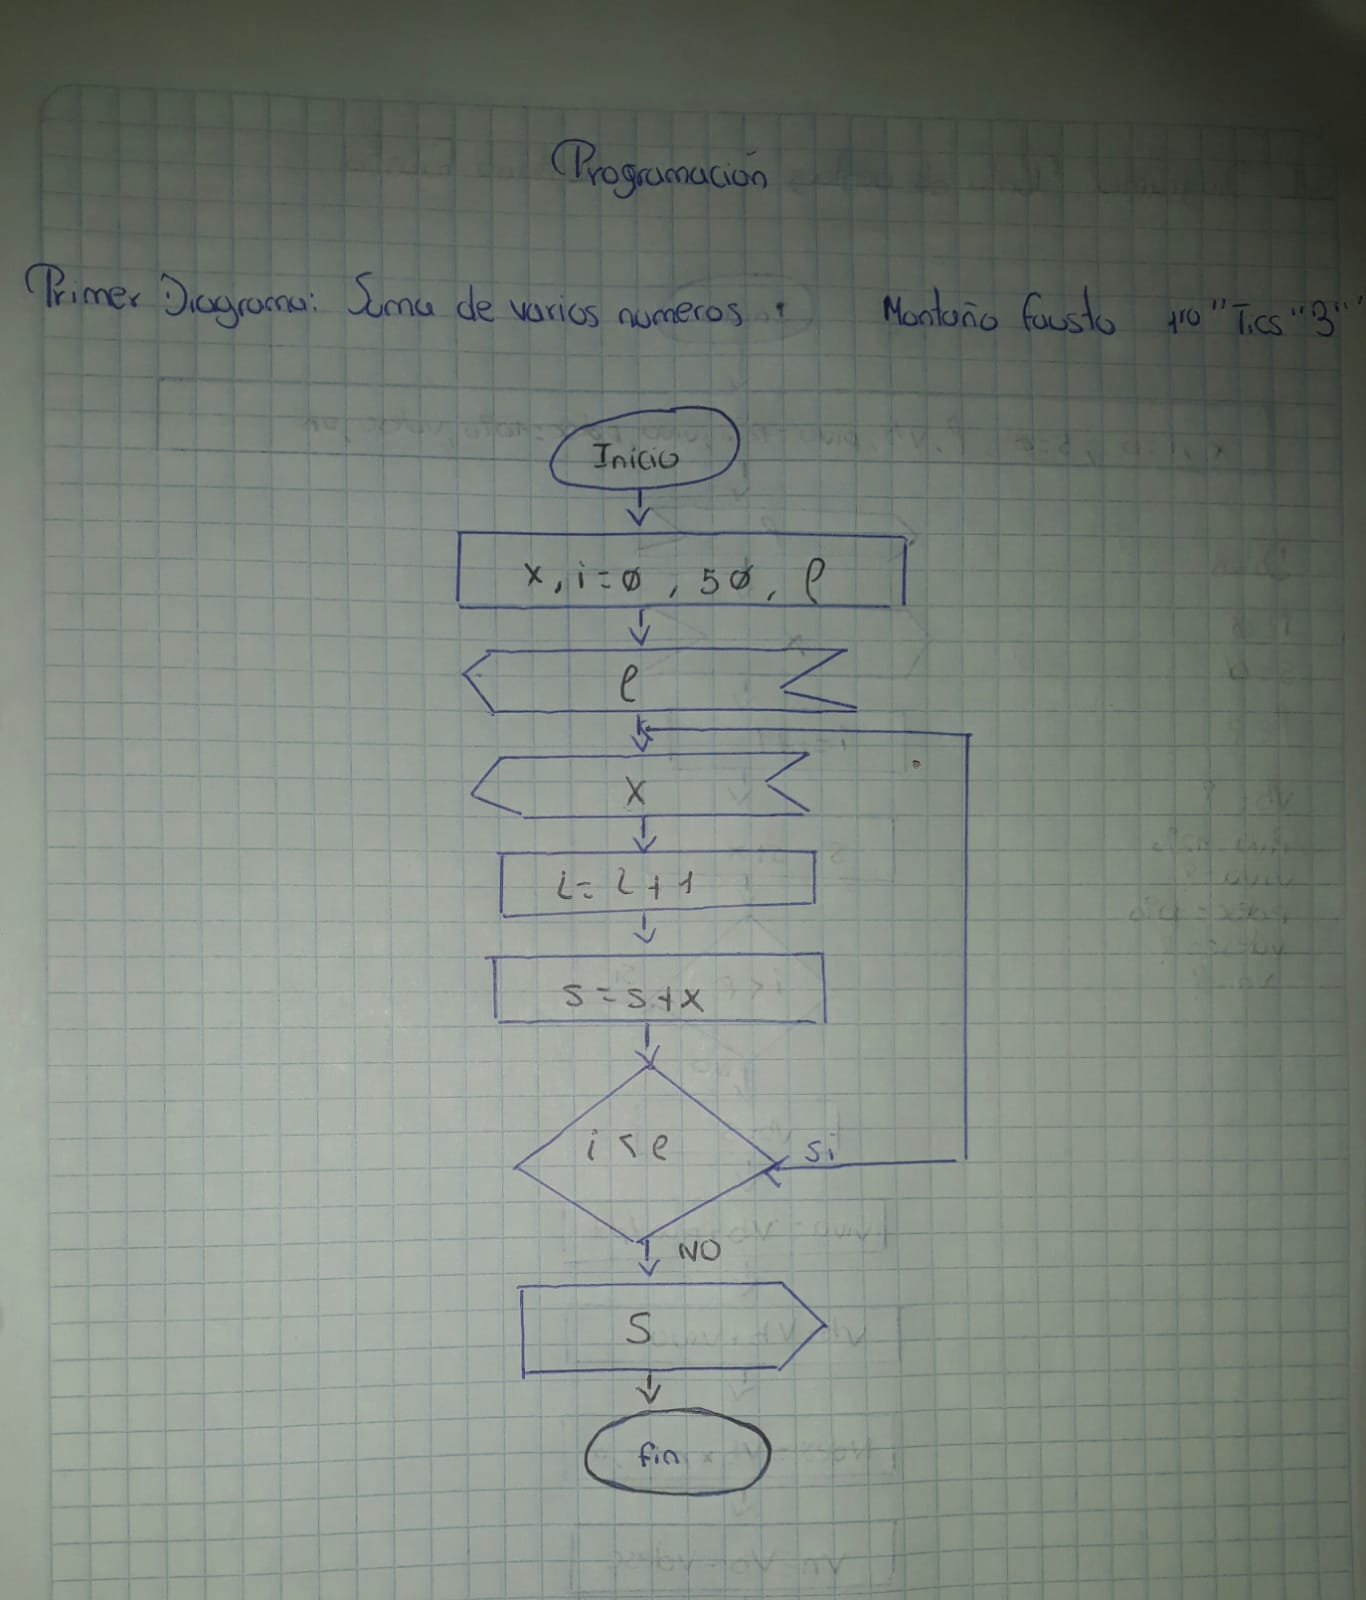 Programación
Primer Diagrama: Suma de varios numeros. Montaño fausto 1ro "Tics "3"
Inicio
x, i=0, 50, e
e
x
i= i+1
s=s+x
i < e
si
NO
S
fin